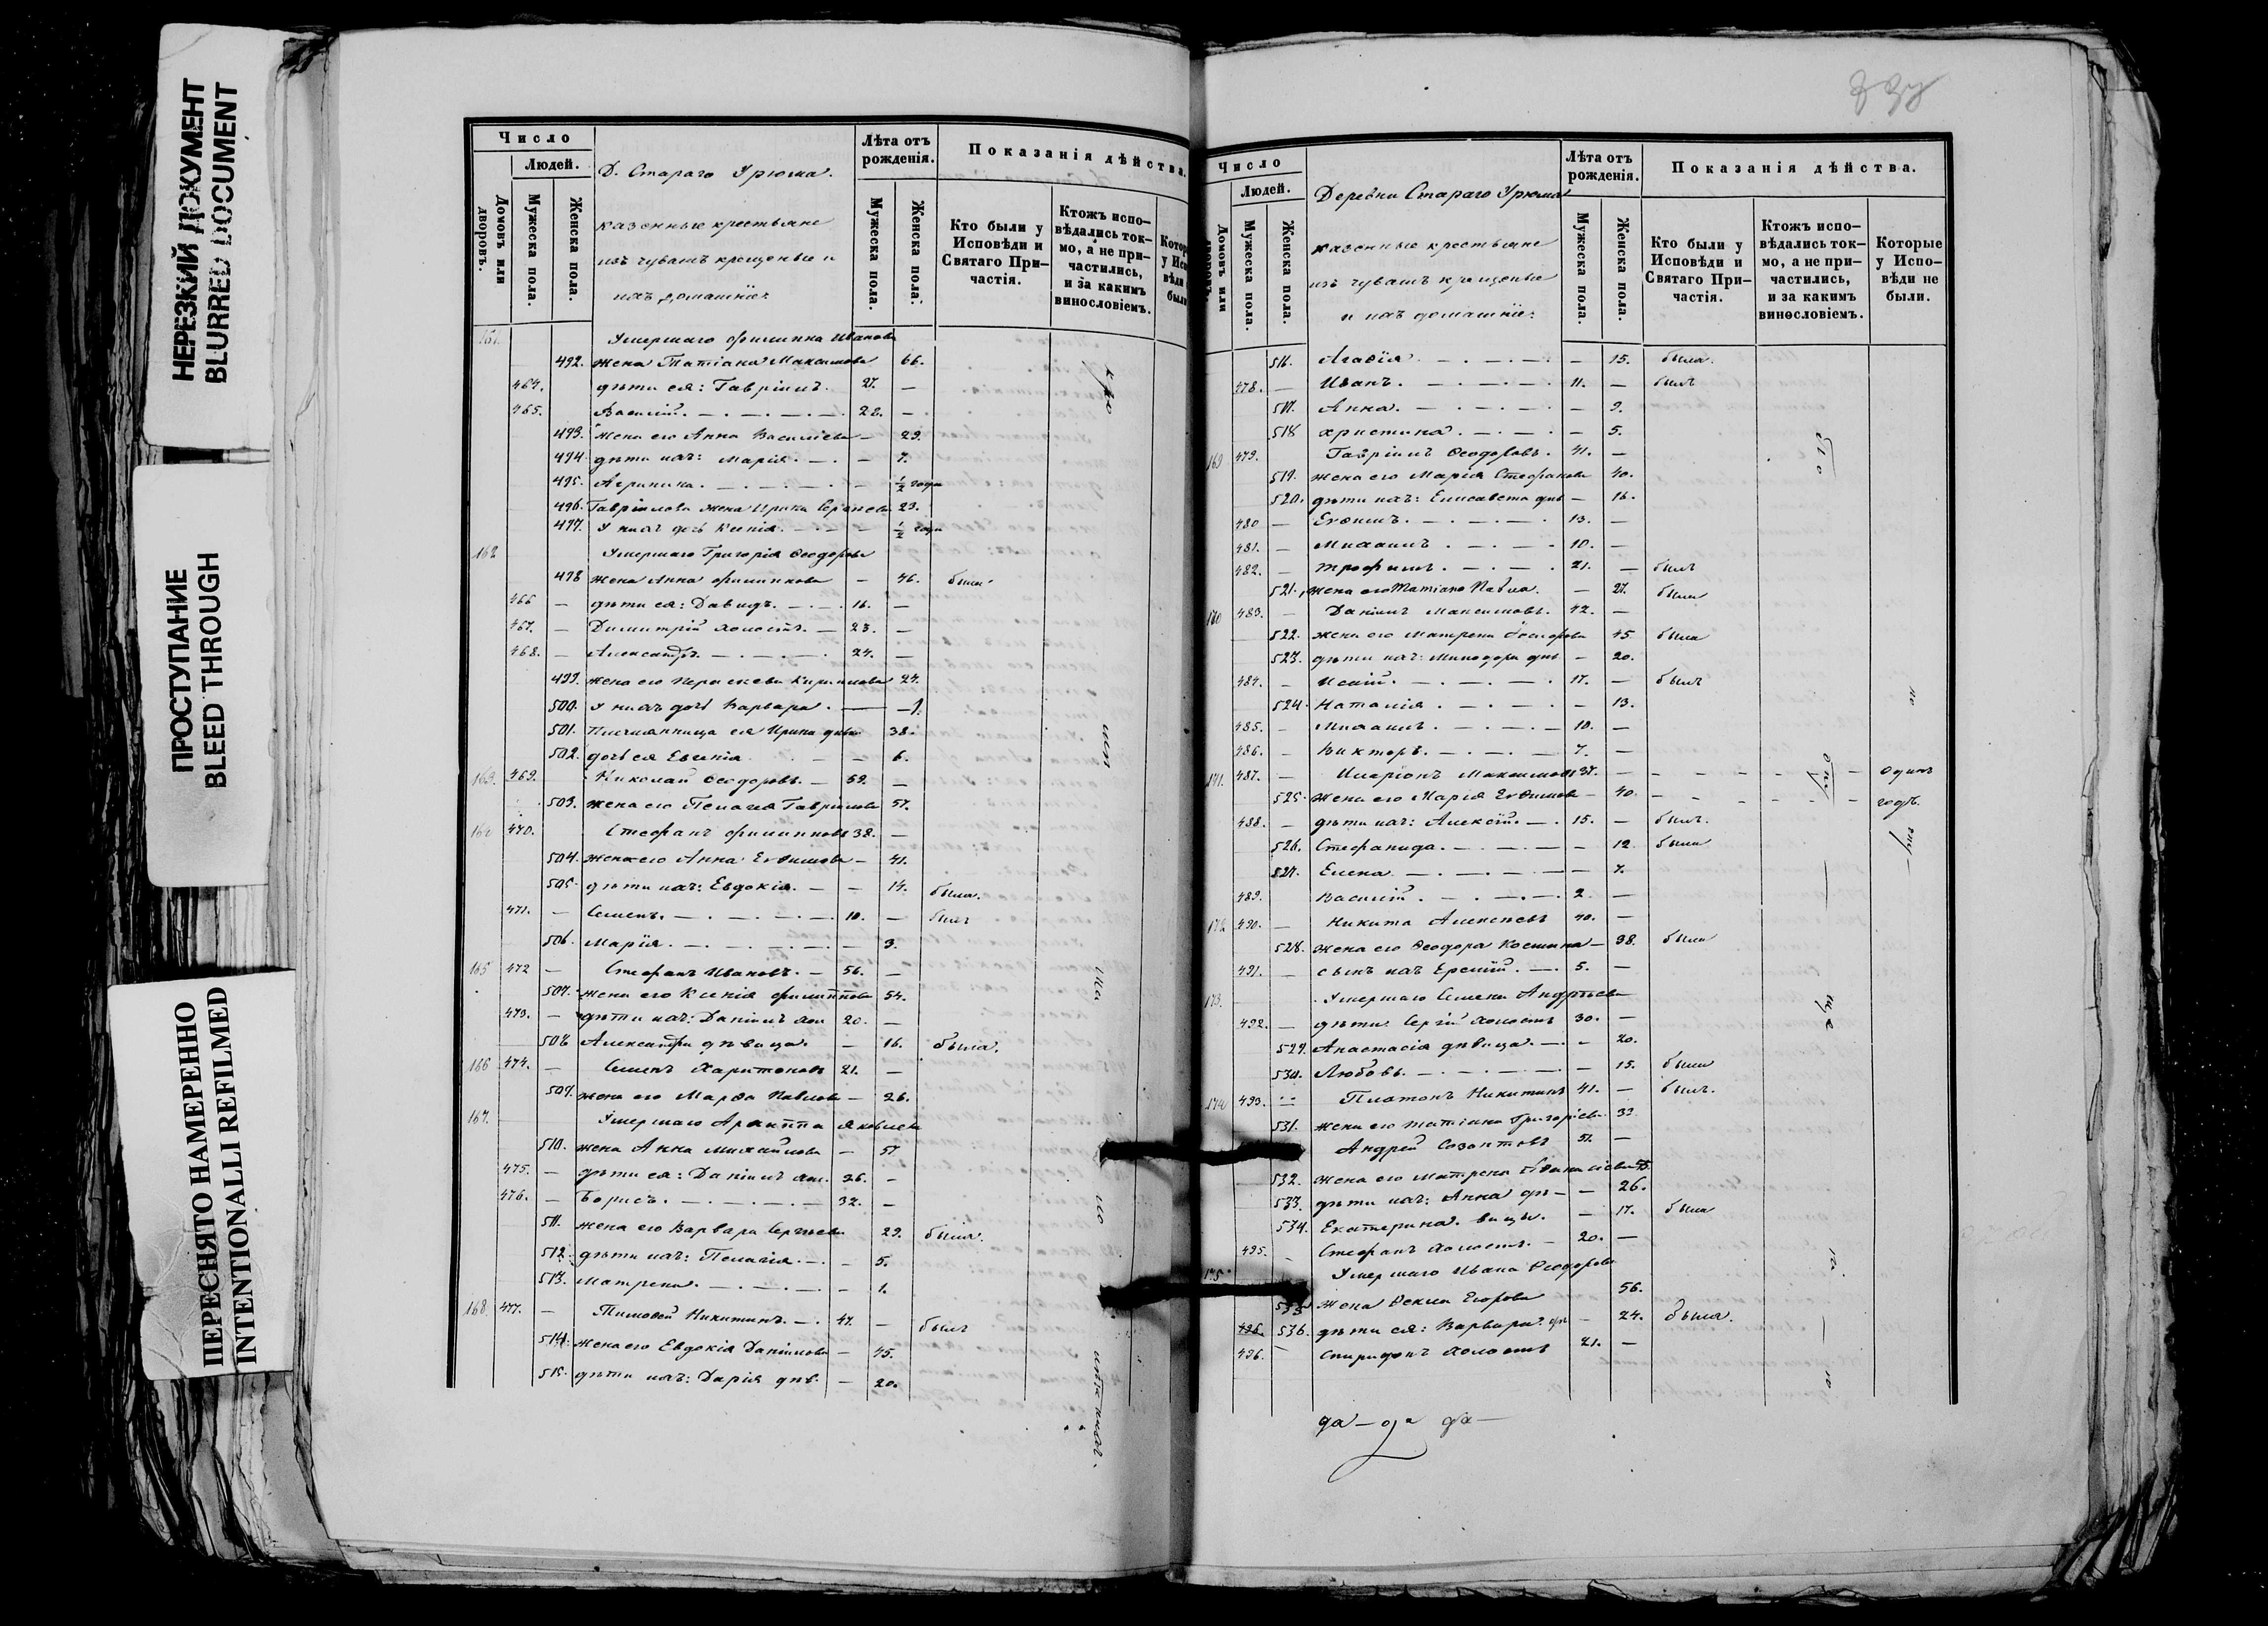 НЕРЕЗКИЙ ДОКУМЕНТ
BLURRED DOCUMENT
ПРОСТУПАНИЕ
BLEED THROUGH
ПЕРЕСНЯТО НАМЕРЕННО
INTENTIONALLI REFILMED
Число
Людей.
Домовъ или дворовъ.
Мужеска пола.
Женска пола.
Д. Стараго Урюма.
казенные крестьяне
изъ чувашъ крещеные и
ихъ домашніе:
Лѣта отъ рожденія.
Мужеска пола.
Женска пола.
Показанія дѣйства.
Кто были у Исповѣди и Святаго Причастія.
Ктожъ исповѣдались токмо, а не причастились, и за какимъ винословіемъ.
161. Умершаго Филиппа Иванова
492. жена Татіана Максимова 66.
464. дѣти ея: Гавріилъ. 27. —
465. Василій. 22. —
493. жена его Анна Васильева — 29.
494. дѣти ихъ: Марія. — 7.
495. Агрипина. — ½ года
496. Гавріилова жена Ирина Сергіева 23.
497. У нихъ дочь Ксенія. — ½ года
162 Умершаго Григорія Ѳеодорова
498 жена Анна Филиппова — 46. была.
466 — дѣти ея: Давидъ. 16. —
467. — Димитрій холостъ. — 23. —
468. — Александръ. 24. —
499. жена его Параскева Кириллова 24.
500. У нихъ дочь Варвара. — 1.
501. Племянница ея Ирина 38.
502. дочь ея Евгенія — 6.
163. 469. Николай Ѳеодоровъ. — 59. —
503. жена его Пелагія Гаврилова 57.
164 470. Стефанъ Филипповъ 38. —
504. жена его Анна Евѳимова — 41.
505. дѣти ихъ: Евдокія. — — 14. была.
471. — Семенъ. 10. — былъ
506. Марія. — 3.
165 472 — Стефанъ Ивановъ. — 56. —
507. жена его Ксенія Филиппова 54.
473. — дѣти ихъ: Даніилъ хол 20. —
508 Александра дѣвица. — 16. была.
166 474. — Семенъ Харитоновъ 21. —
509. жена его Марѳа Павлова — 26.
167. Умершаго Архиппа Яковлева
510. жена Анна Михайлова — 57
475. — дѣти ея: Даніилъ хол. 26. —
476. — Борисъ. 32. —
511. жена его Варвара Сергѣева 29. была.
512. дѣти ихъ: Пелагія. — 5.
513. Матрена. — 1.
168. 477. — Тимоѳей Никитинъ. 47. — былъ
514. жена его Евдокія Даніилова — 45.
515. дѣти ихъ: Дарія дѣв. — 20.
Число
Людей.
Домовъ или дворовъ.
Мужеска пола.
Женска пола.
Деревни Стараго Урюма
казенные крестьяне
изъ чувашъ крещеные
и ихъ домашніе:
Лѣта отъ рожденія.
Мужеска пола.
Женска пола.
Показанія дѣйства.
Кто были у Исповѣди и Святаго Причастія.
Ктожъ исповѣдались токмо, а не причастились, и за какимъ винословіемъ.
Которые у Исповѣди не были.
516. Агаѳія — 15. была.
478. — Иванъ. 11. — былъ
517. Анна. — 9.
518 Христина. — 5.
169 479. Гавріилъ Ѳеодоровъ. 41. —
519. жена его Марія Стефанова 40.
520. дѣти ихъ: Елисавета дѣв — 16.
480 — Евѳимъ. 13. —
481. — Михаилъ 10. —
482. — Трофимъ. 21. — былъ
521. жена его Татіана Павла. — 27. была
170 483. — Даніилъ Максимовъ. 42. —
522. жена его Матрена 45 была
523. дѣти ихъ: Минодора дѣв — 20.
484. — 17. — былъ
524. Наталія — 13.
485. — Михаилъ 10. —
486. — Викторъ. 7. —
171. 487. — Иларіонъ Максимовъ 37. — одинъ
525. жена его Марія Евѳимова — 40. годъ.
488. — дѣти ихъ: Алексій. 15. — былъ.
526. Стефанида. — 12 была
527. Елена — 7.
489. Василій 2 —
172 490. — Никита Алексѣевъ 40. —
528. жена его Ѳеодора Космина — 38. была
491. — сынъ ихъ 5. —
173. Умершаго Семена Андрѣева
492. — дѣти Сергій холостъ 30. —
529. Анастасія дѣвица. — 20.
530. Любовь. — 15. была
174 493. Платонъ Никитинъ 41. — былъ.
531. жена его Татіана Григоріева 33
Андрей Созонтовъ 51. —
532. жена его Матрена Аѳанасіева 53.
533. дѣти ихъ: Анна дѣ— — 26.
534. Екатерина. вицы. — 17. была
495. Стефанъ холостъ. — 20. —
175 Умершаго Ивана Ѳеодорова
535 жена Ѳекла Егорова 56.
496. 536. дѣти ея: Варвара дѣ — 24. была.
496. Спиридонъ холостъ 21. —
да — да да —